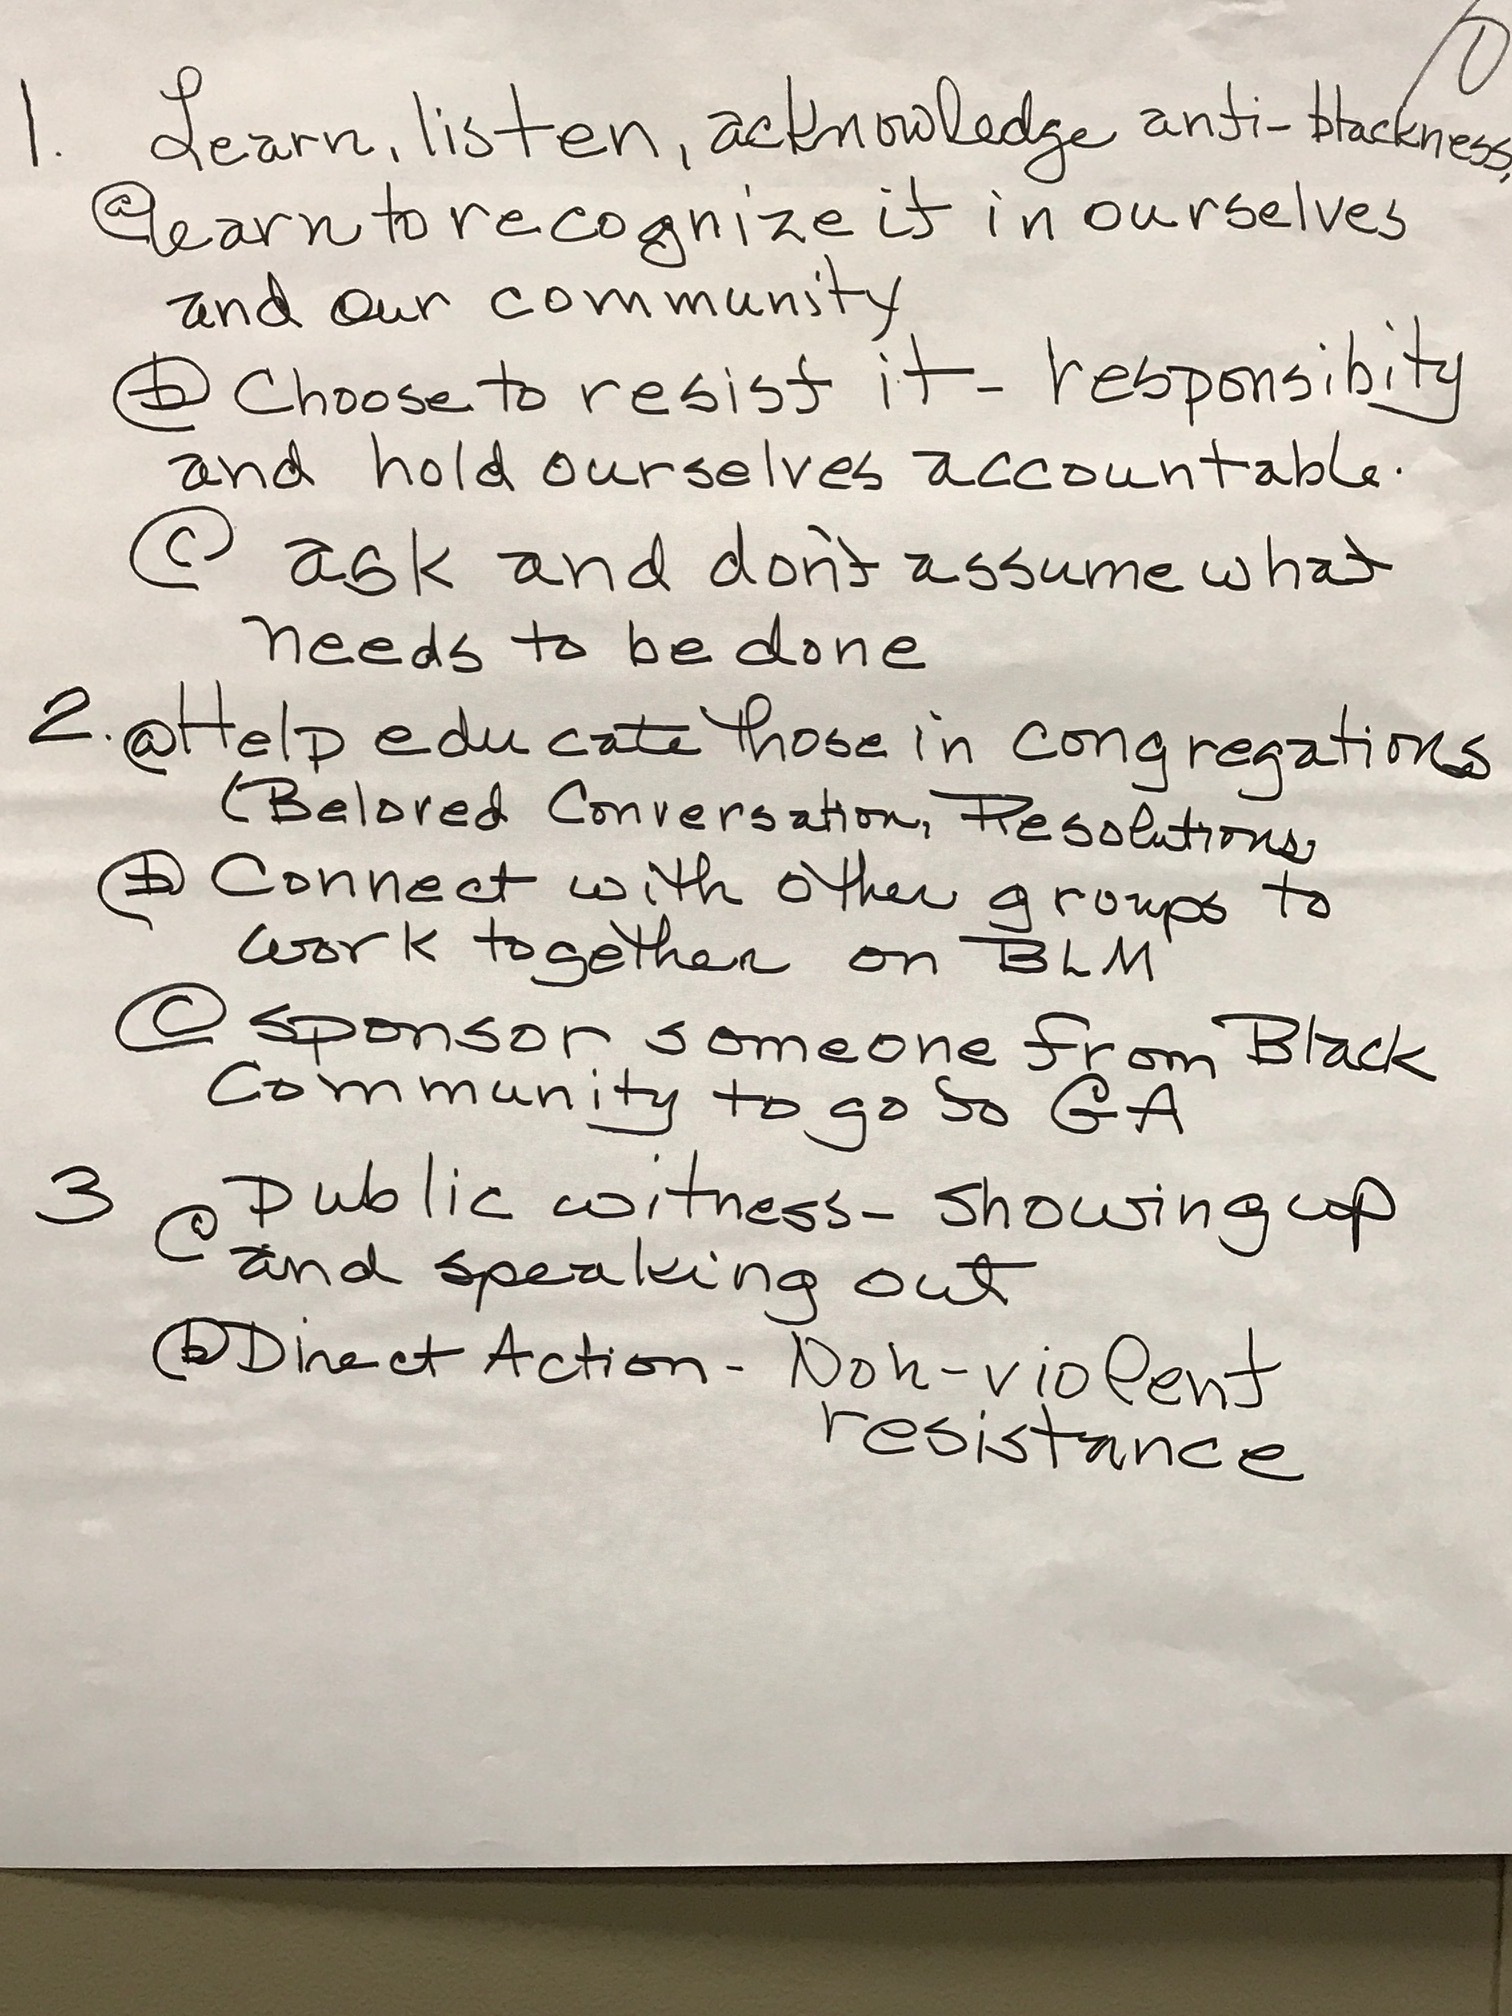 1. Learn, listen, acknowledge anti-blackness,
ⓐ learn to recognize it in ourselves
and our community
ⓑ Choose to resist it - responsibity
and hold ourselves accountable.
ⓒ ask and don't assume what
needs to be done
2. ⓐ Help educate those in congregations
(Beloved Conversation, Resolutions
ⓑ Connect with other groups to
work together on BLM
ⓒ sponsor someone from Black
Community to go to GA
3 ⓐ Public witness - showing up
and speaking out
ⓑ Direct Action - Non-violent
resistance